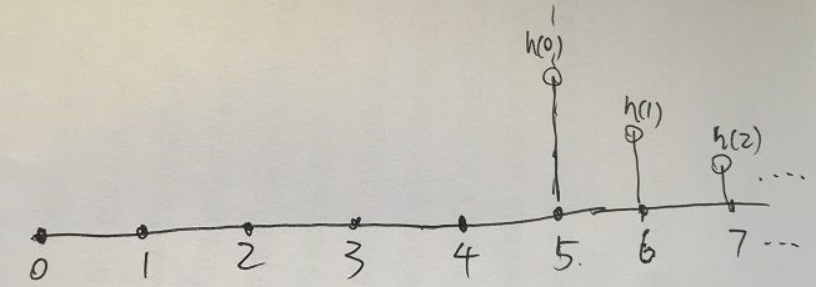 h(0)
h(1)
h(2)
....
0 1 2 3 4 5. 6 7 ...